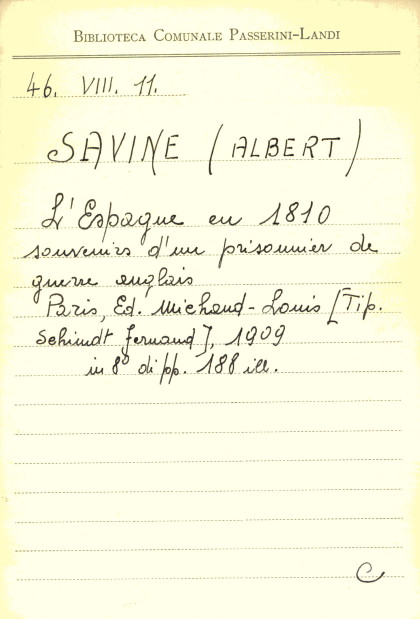 BIBLIOTECA COMUNALE PASSERINI-LANDI
46. VIII. 11.
SAVINE (ALBERT)
L'Espagne en 1810
souvenirs d'un prisonnier de
guerre anglais
Paris, Ed. Michaud-Louis [Tip.
Schimdt Fernand], 1909
in 8º di pp. 188 ill.
C